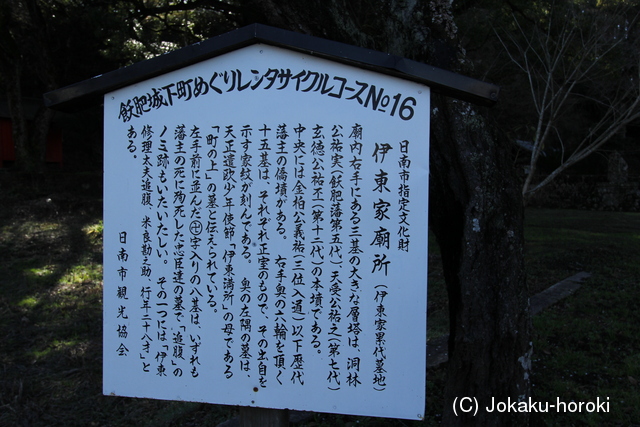 飫肥城下町めぐりレンタサイクルコースNo16
日南市指定文化財
伊東家廟所（伊東家累代墓地）
廟内右手にある三基の大きな層塔は、洞林
公祐実（飫肥藩第五代）、天受公祐之（第七代）
玄徳公祐丕（第十二代）の本墳である。
中央には金柏公義祐（三位入道）以下歴代
藩主の僑墳がある。右手奥の六輪を頂く
十五基は、それぞれ正室のもので、その出自を
示す家紋が刻んである。奥の左隅の墓は、
天正遣欧少年使節「伊東満所」の母である
「町の上」の墓と伝えられている。
左手前に並んだ卍字入りの八基は、いずれも
藩主の死に殉死した忠臣達の墓で、「追腹」の
ノミ跡もいたいたしい。その一つには、「伊東
修理太夫追腹、米良勘之助、行年二十八才」と
ある。
日南市観光協会
(C) Jokaku-horoki